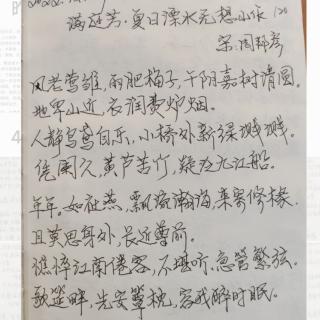 满庭芳·夏日溧水无想山作
宋：周邦彦
风老莺雏，雨肥梅子，午阴嘉树清圆。
地卑山近，衣润费炉烟。
人静乌鸢自乐，小桥外新绿溅溅。
凭阑久，黄芦苦竹，疑泛九江船。
年年。如社燕，飘流瀚海，来寄修椽。
且莫思身外，长近尊前。
憔悴江南倦客，不堪听、急管繁弦。
歌筵畔，先安簟枕，容我醉时眠。